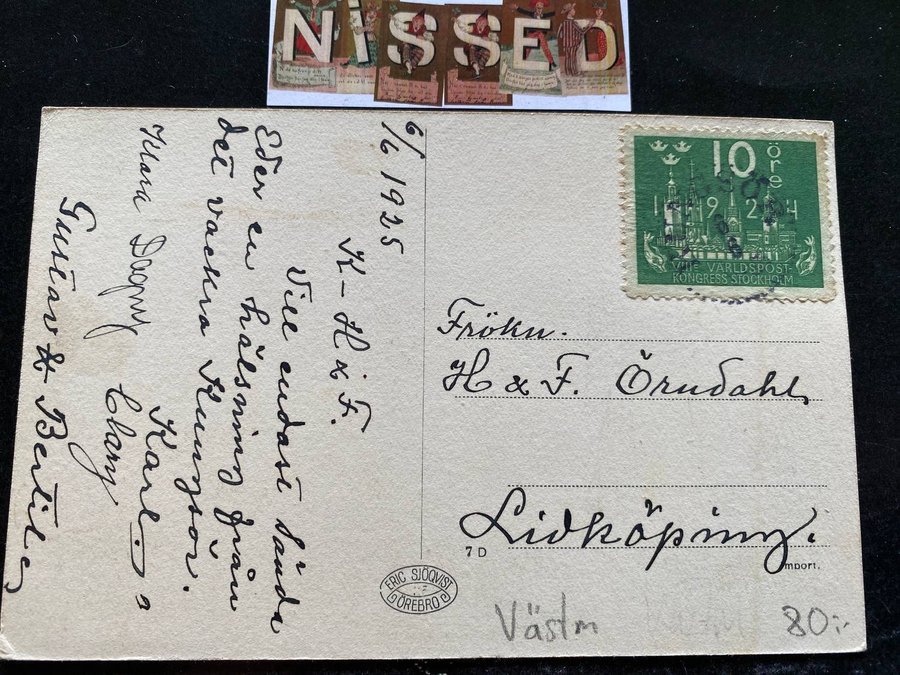 NISSED
6/6 1925
K-H & F.
Vill endast sända
Eder en hälsning från
det vackra Kungsör.
Karl.
Klara Dagny Elsny
Gustav & Bertil
10
öre
1924
VIIIDE VÄRLDSPOST-
KONGRESS STOCKHOLM
Frökn.
H & F. Örndahl,
Lidköping.
7 D
Import.
ERIC SJÖQVIST
ÖREBRO
Västm
80:-